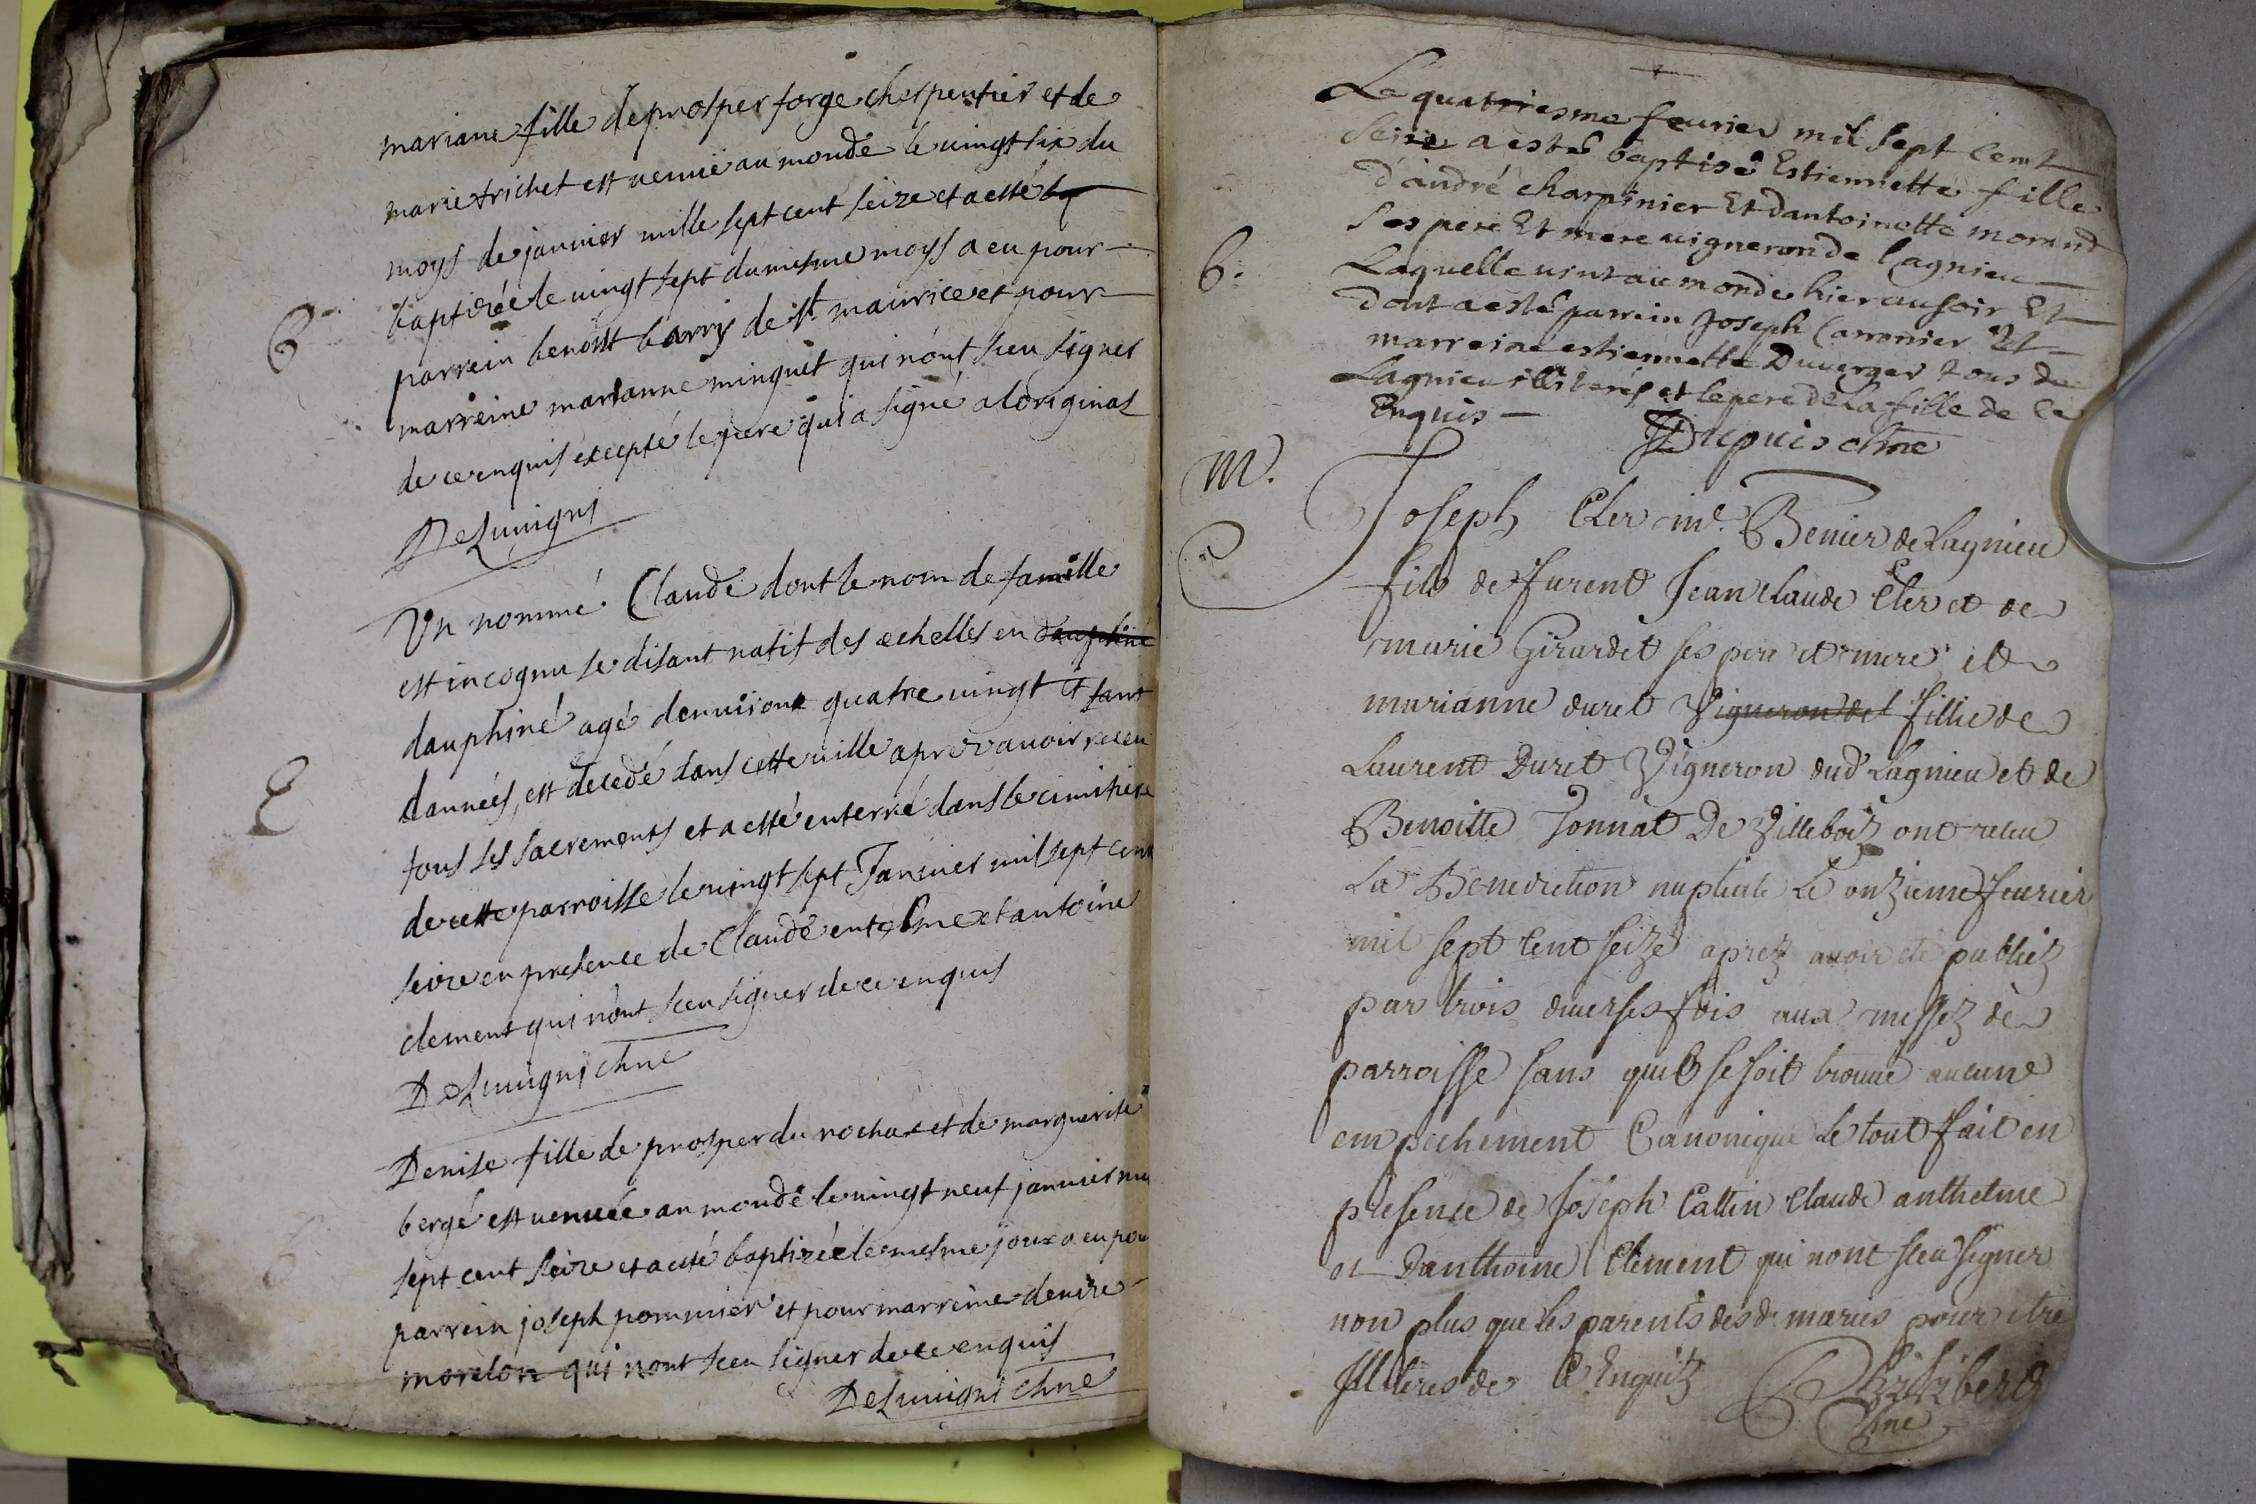 mariane fille de prosper forge cherpentier et de
marie trichet est venuë au monde le vingt six du
moys de janvier mille sept cent seize et a esté
B
baptizée le vingt sept du mesme moys a eu pour
parrein benoist barry de st maurice et pour
marreine marianne minguet qui n'ont sceu signer
de ce enquis excepté le pere qui a signé a loriginal
DeLuvigni
Un nommé Claude dont le nom de famille
est incognu se disant natif des echelles en dauphiné
dauphiné agé denvirons quatre vingt et tant
E
dannées, est decedé dans cette ville aprez avoir receu
tous ses sacrements et a esté enterré dans le cimitiere
de cette parroisse le vingt sept Janvier mil sept cent
seize en presence de Claude entelme et antoine
clement qui n'ont sceu signer de ce enquis
DeLuvigni chne
Denise fille de prosper du rochat et de marguerite
bergé est venuée au monde le vingt neuf janvier mil
sept cent seize et a esté baptizée le mesme jour a eu pour
parrein joseph pommier et pour marreine denize
morelon qui nont sceu signer de ce enquis
DeLuvigni chne
Le quatriesme fevrier mil sept cent
seize a esté baptisé Estiennette fille
d'andré charpinier Et dantoinette morand
ses pere Et mere vigneron de Lagnieu
B.
Laquelle vint au monde hier au soir Et
dont a esté parrein Joseph Carronier Et
marreine estiennette Duverger tous de
Lagnieu illiterés et le pere de La fille de ce
Enquis
Dupuis chne
M.
Joseph Cler me Benier de Lagnieu
fils de furent Jean Claude Cler et de
marie Girardet ses pere et mere et
marianne duret Vigneron del fillie de
Laurent Duret Vigneron dud Lagnieu et de
Benoitte Jonnat De Villeboiz ont receu
La Benediction nuptiale Le onzieme feurier
mil sept Cent seize aprez avoir eté publiez
par trois diverses fois aux messez de
parroisse sans quil se soit trouué aucune
empechement Canonique Le tout fait en
presence de Joseph Cattin Claude anthelme
et Danthoine Clement qui nont sceu signer
non plus que les parents des d. maries pour etre
Illiteres de Ce Enquiz
chne